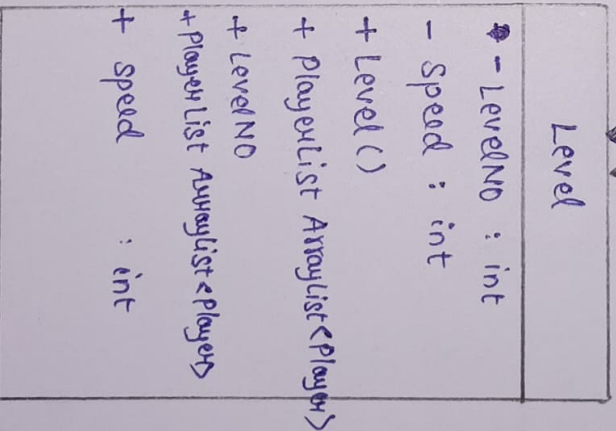 Level
- LevelNO : int
- Speed : int
+ Level()
+ PlayerList ArrayList<Player>
+ LevelNO
+ PlayerList ArrayList<Player>
+ speed : int